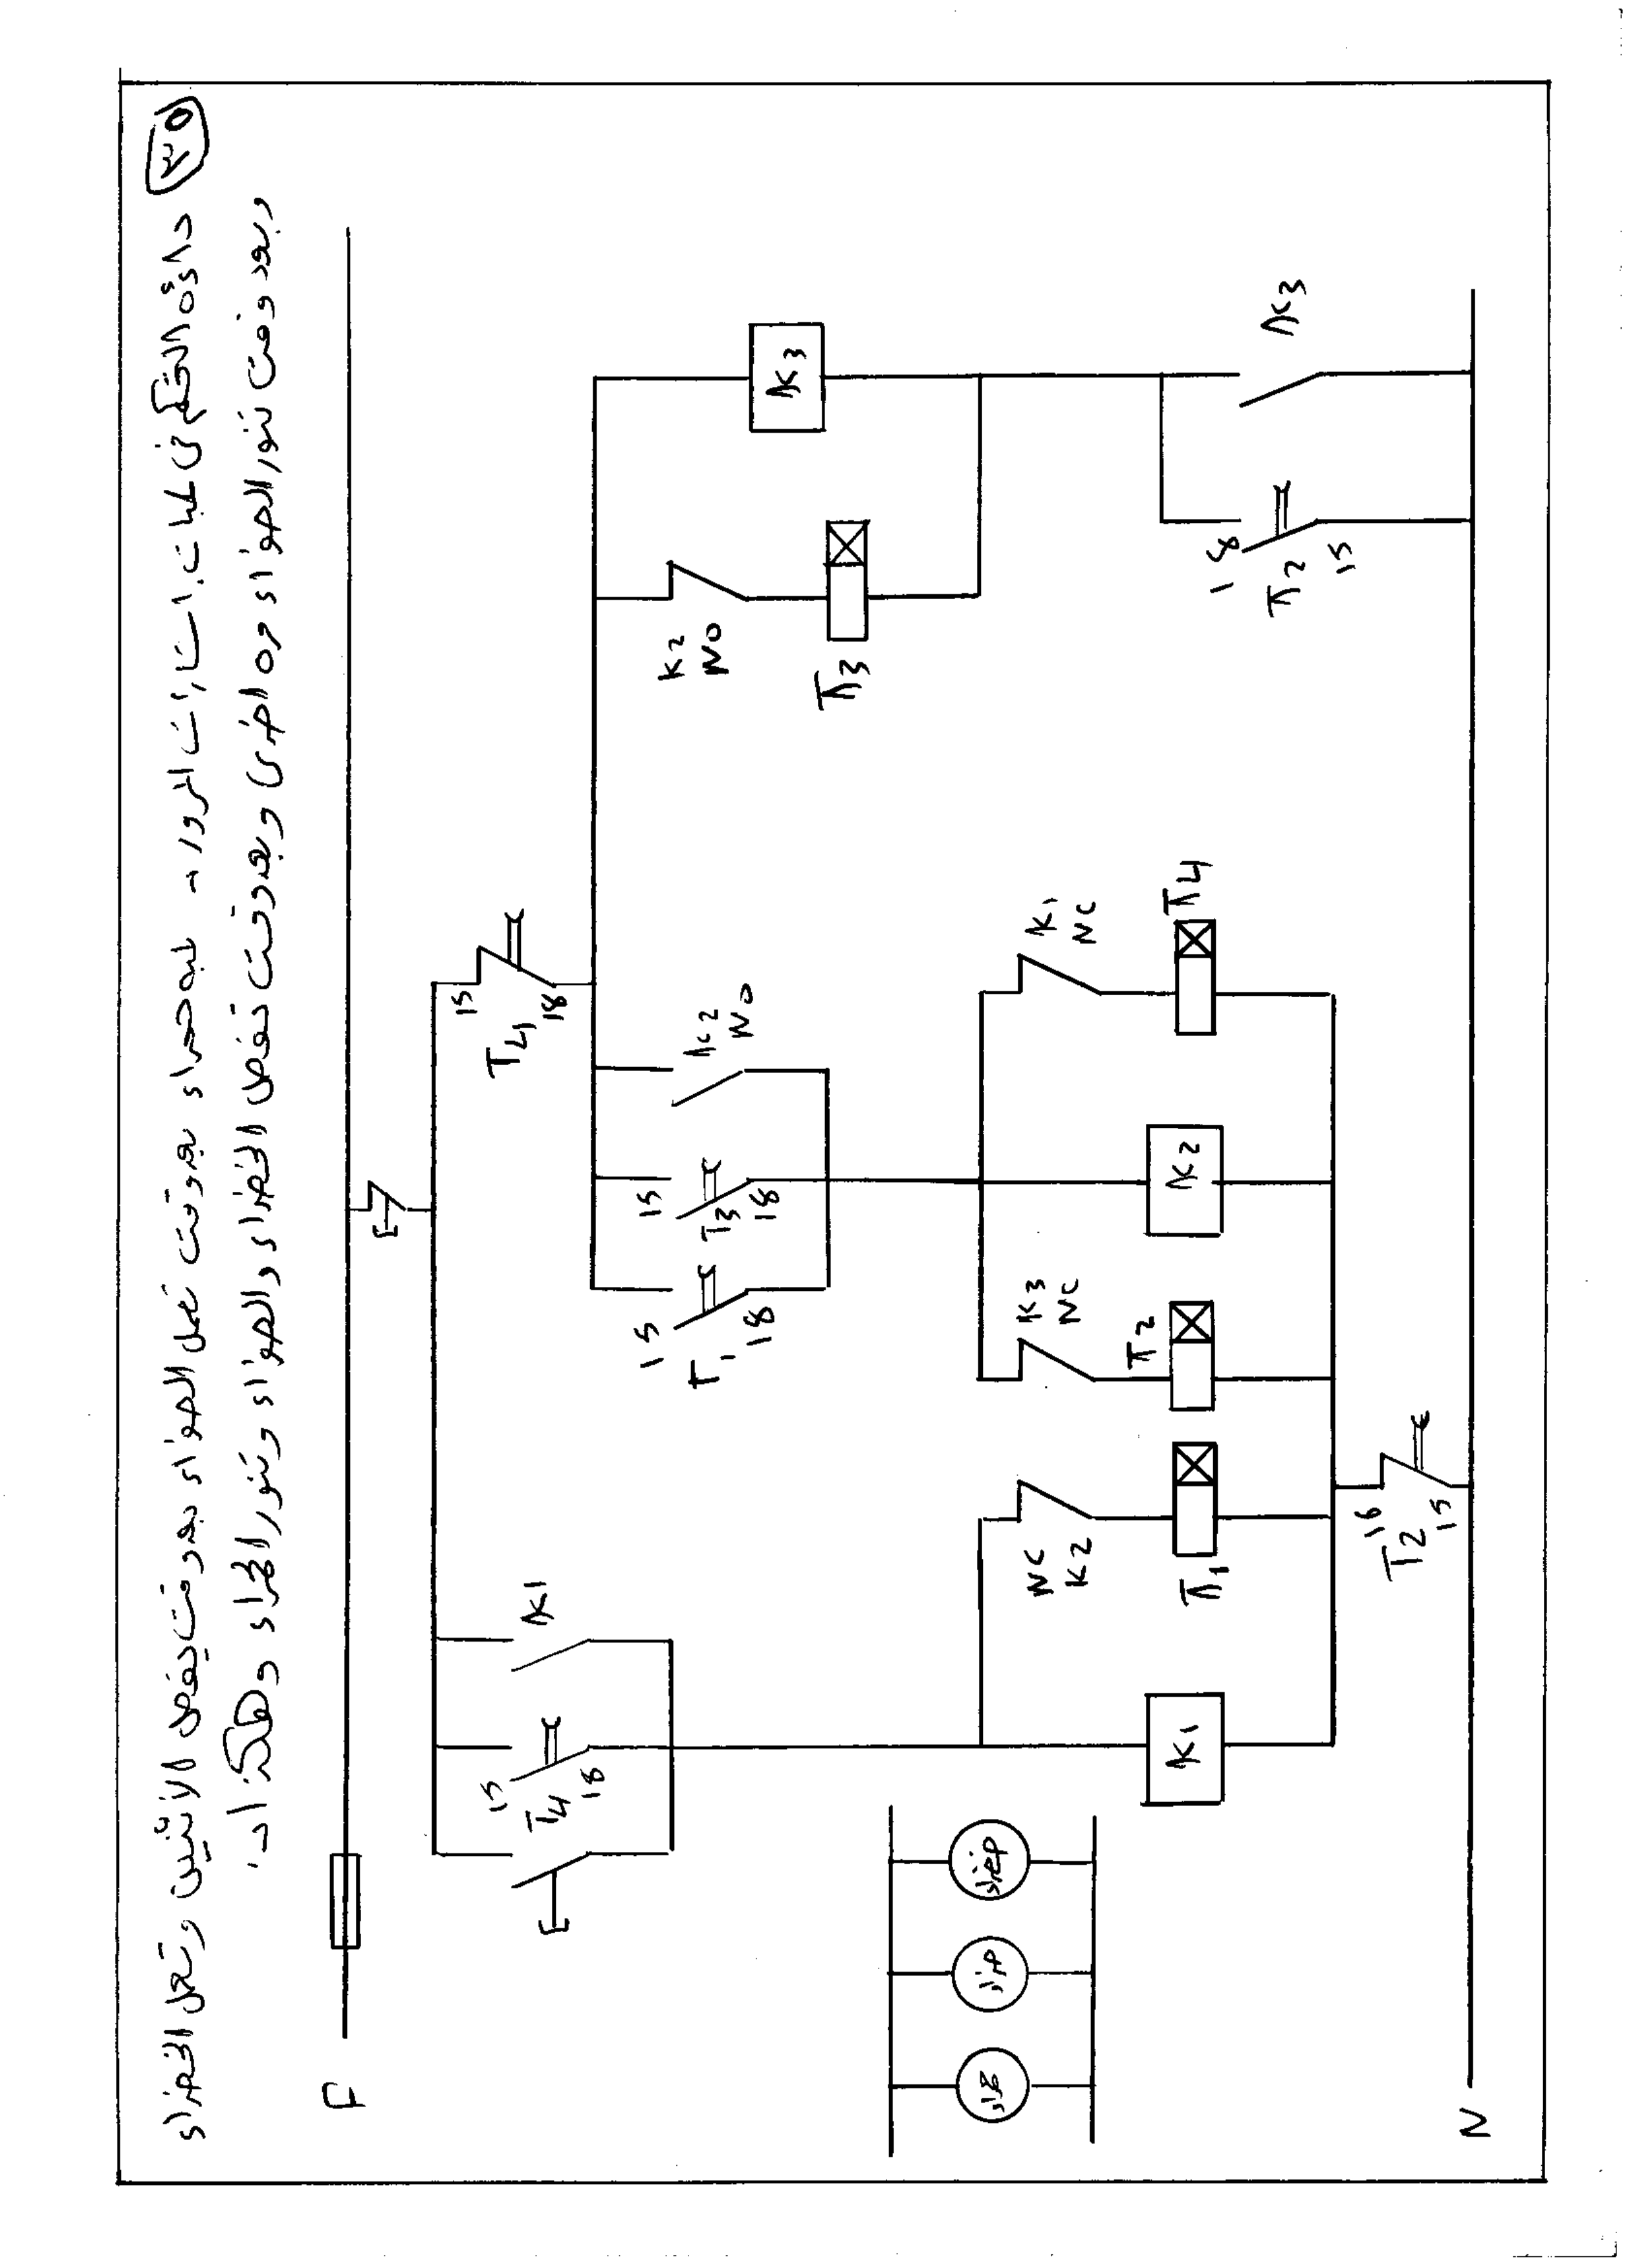 ٣٥ دائرة التحكم فى لمبات اشارات المرور - لمبه حمراء بعد وقت تعمل الصفراء بعد وقت يفصل الاثنين وتعمل الخضراء
وبعد وقت تنور الصفراء مره اخرى وبعد وقت تفصل الخضراء والصفراء وتنور الحمراء وهكذا
F
15
T4
18
K1
15
T4
18
15
T1
18
15
T3
18
K2
NO
K2
NO
T3
K3
NC
K2
K3
NC
K1
NC
K1
T1
T2
K2
T4
حمراء
صفراء
خضراء
16
T2
15
18
T2
15
K3
N